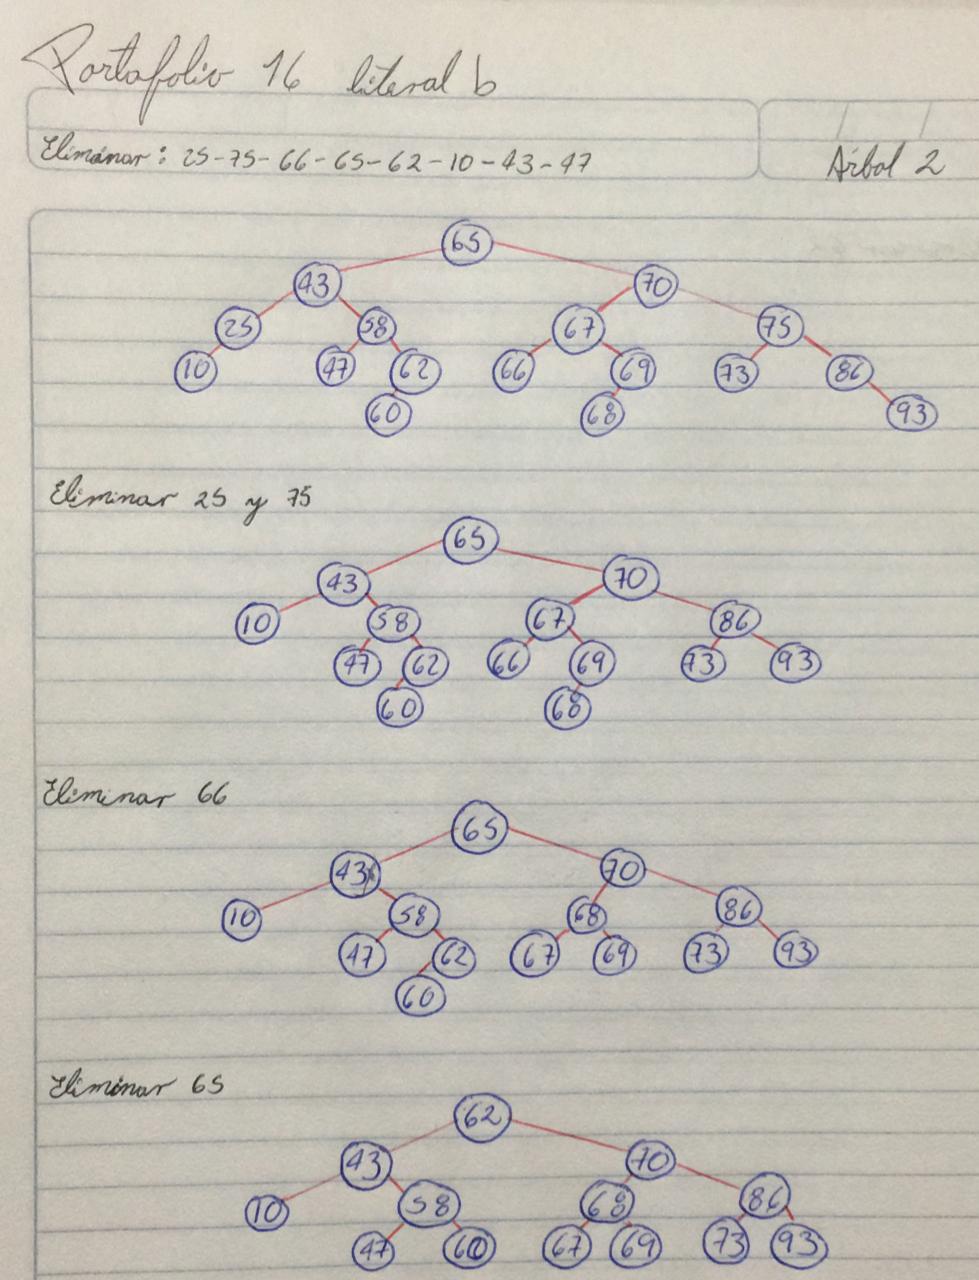 Portafolio 16 literal b
Eliminar: 25-75-66-65-62-10-43-47
Árbol 2
65
43 70
25 58 67 75
10 47 62 66 69 73 86
60 68 93
Eliminar 25 y 75
65
43 70
10 58 67 86
47 62 66 69 73 93
60 68
Eliminar 66
65
43 70
10 58 68 86
47 62 67 69 73 93
60
Eliminar 65
62
43 70
10 58 68 86
47 60 67 69 73 93